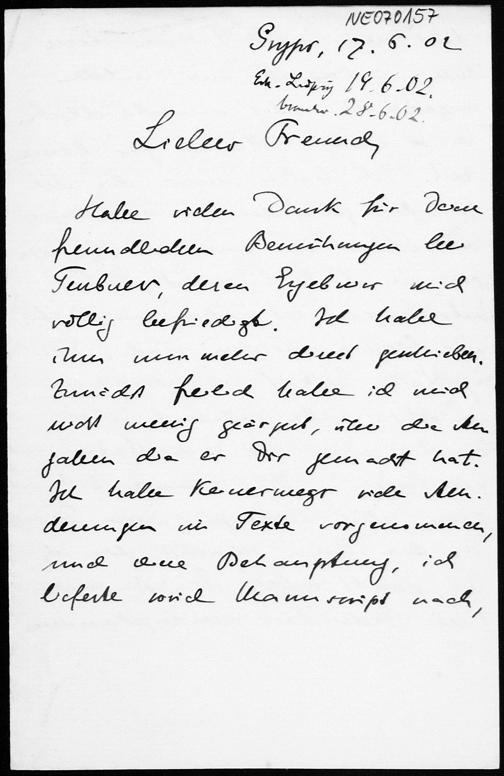 NE070157
Gryps, 17. 6. 02
Erh. Leipzig 19.6.02.
beantw. 28.6.02.
Lieber Freund,
Habe vielen Dank für Deine
freundlichen Bemühungen bei
Teubner, deren Ergebnis mich
völlig befriedigt. Ich habe
ihm nunmehr direct geschrieben.
Zunächst freilich habe ich mich
nicht wenig geärgert, über die An
gaben die er Dir gemacht hat.
Ich habe keineswegs viele Aen-
derungen im Texte vorgenommen,
und die Behauptung, ich
lieferte Manuscript nach,